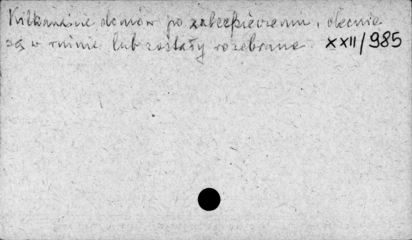 Kilkanaście domów po zabezpieczeniu, obecnie
są w ruinie lub zostały rozebrane XXII/985